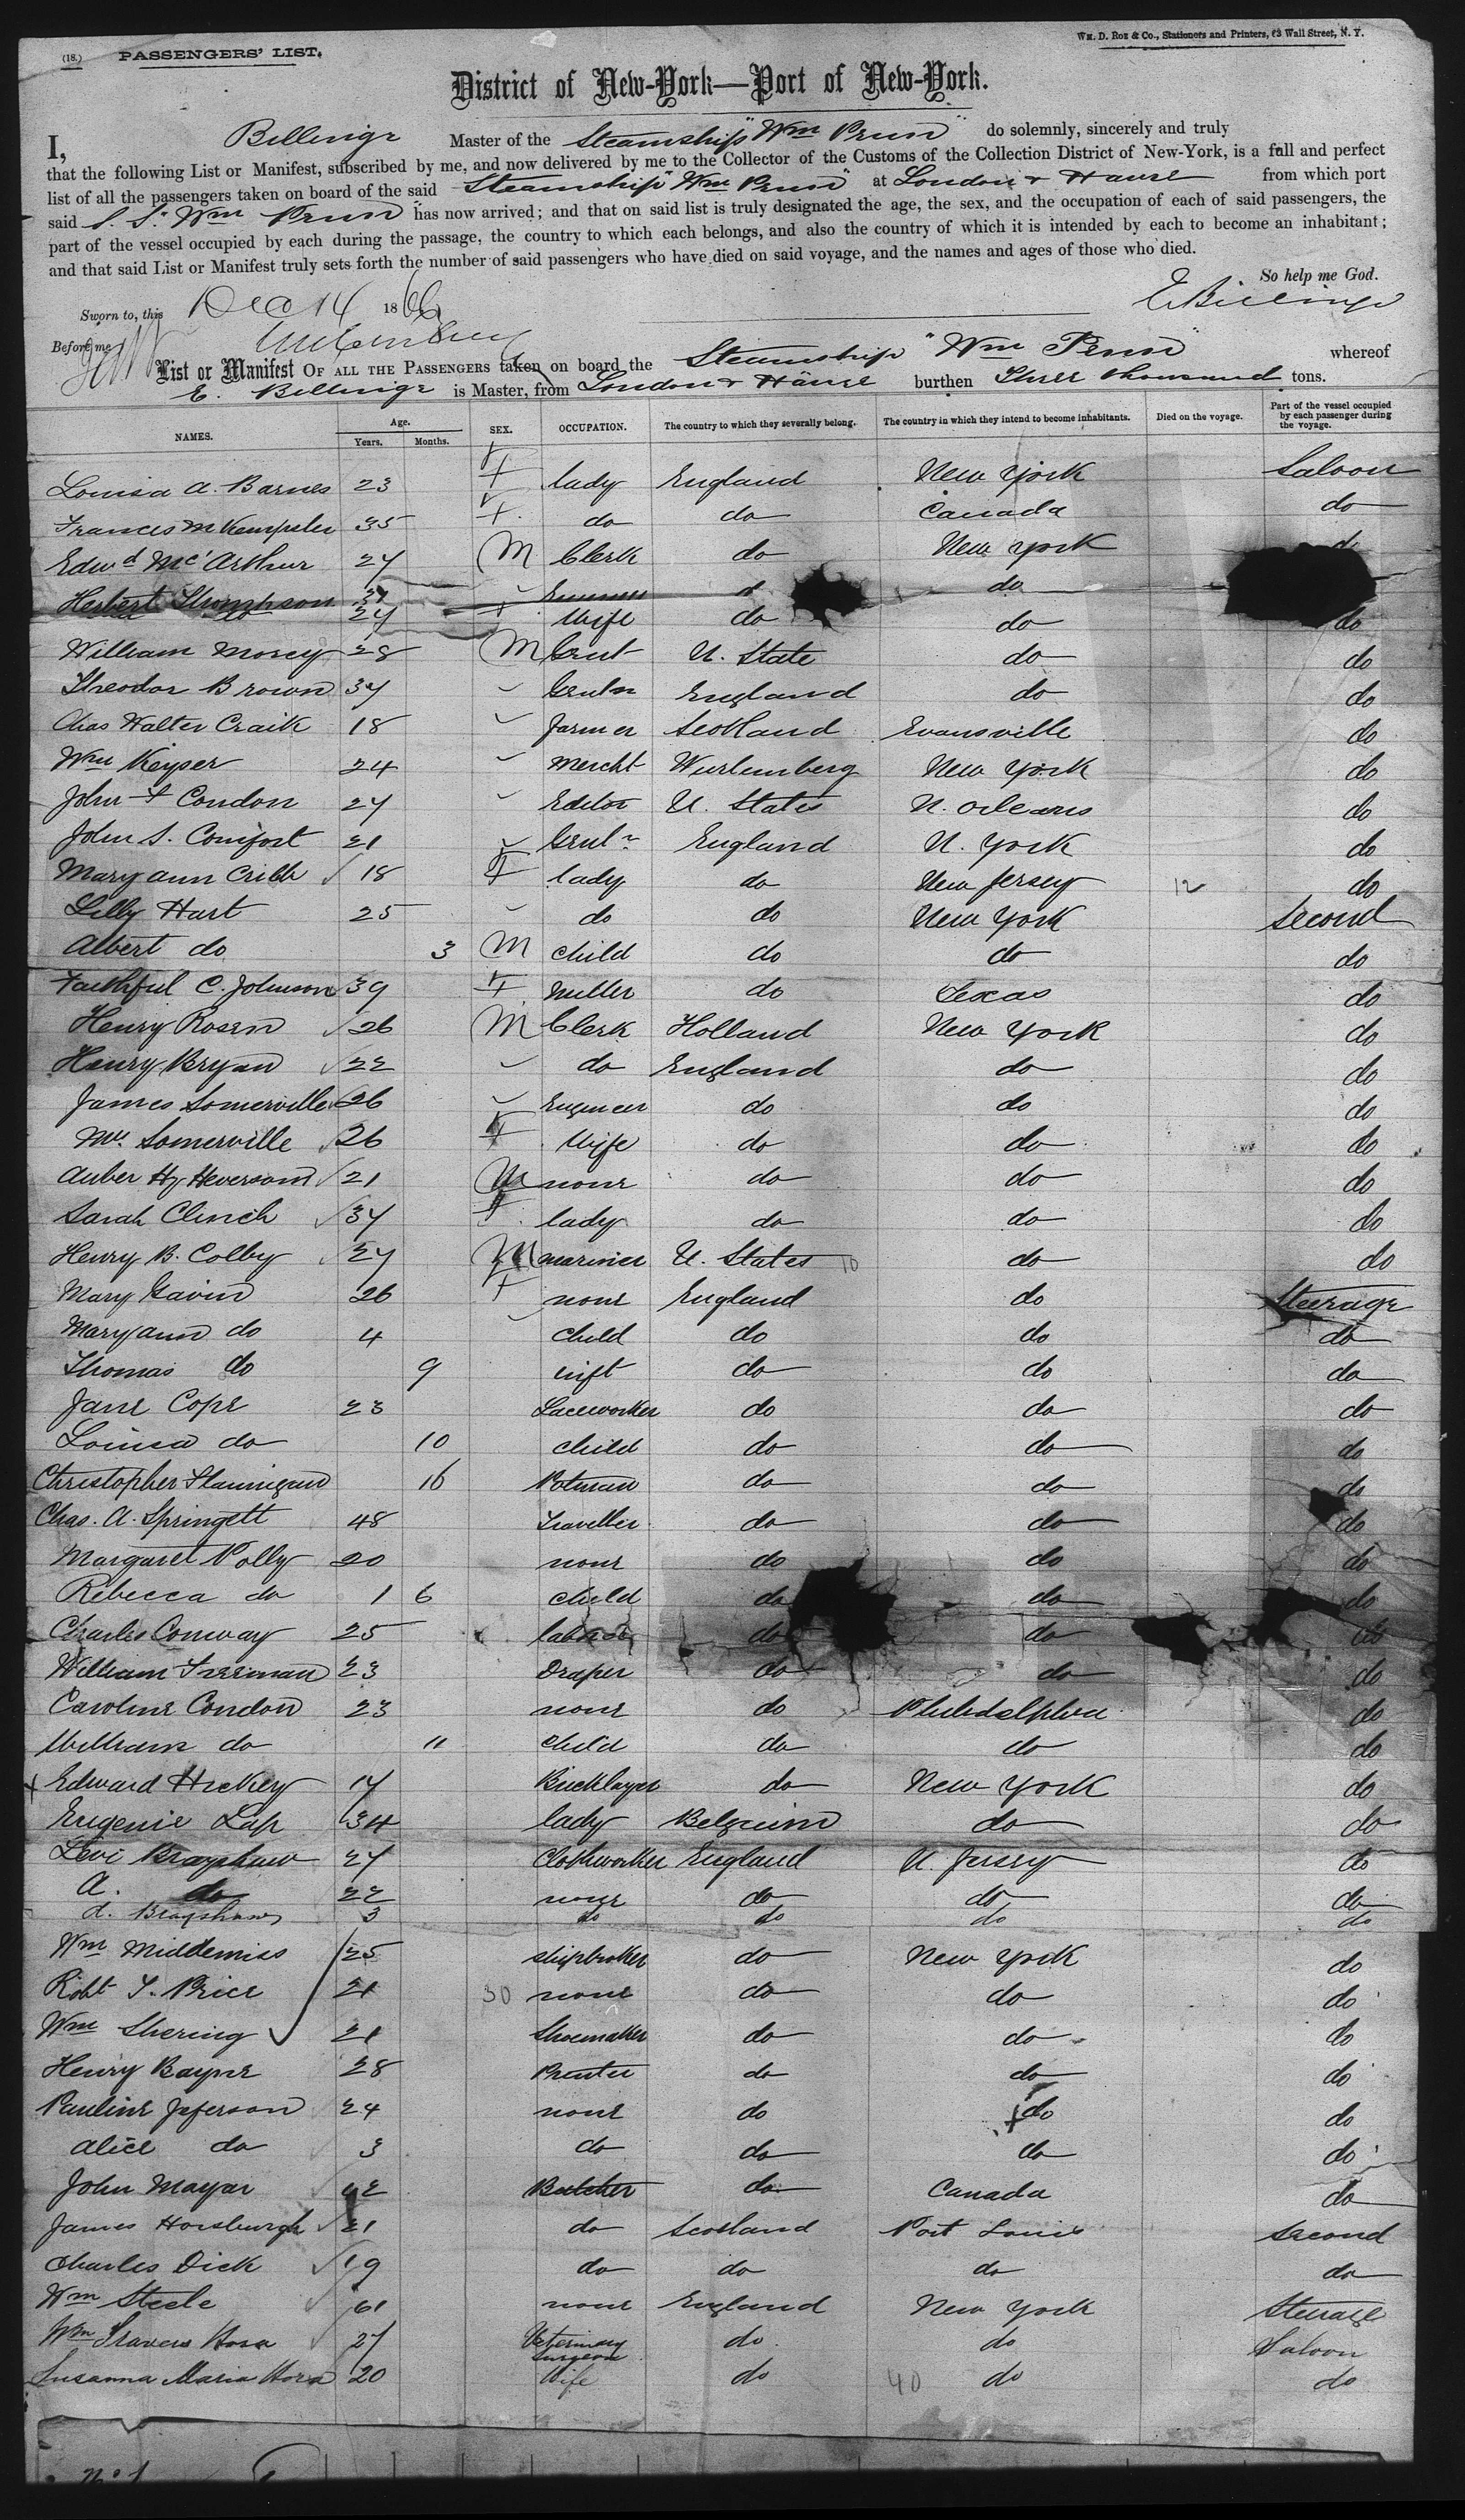 (18.) PASSENGERS' LIST.
Wm. D. Roe & Co., Stationers and Printers, 63 Wall Street, N. Y.
District of New-York—Port of New-York.
I, Billings Master of the Steamship "Wm Penn" do solemnly, sincerely and truly
that the following List or Manifest, subscribed by me, and now delivered by me to the Collector of the Customs of the Collection District of New-York, is a full and perfect
list of all the passengers taken on board of the said Steamship "Wm Penn" at London & Havre from which port
said S. S. "Wm Penn" has now arrived; and that on said list is truly designated the age, the sex, and the occupation of each of said passengers, the
part of the vessel occupied by each during the passage, the country to which each belongs, and also the country of which it is intended by each to become an inhabitant;
and that said List or Manifest truly sets forth the number of said passengers who have died on said voyage, and the names and ages of those who died.
So help me God.
Sworn to, this Dec 14 1866 E Billings
Before me
List or Manifest OF ALL THE PASSENGERS taken on board the Steamship "Wm Penn" whereof
E. Billings is Master, from London & Havre burthen Three thousand tons.
NAMES. Age. Years. Months. SEX. OCCUPATION. The country to which they severally belong. The country in which they intend to become inhabitants. Died on the voyage. Part of the vessel occupied by each passenger during the voyage.
Louisa A. Barnes 23 F lady England New York Saloon
Frances M Kempster 35 F do do Canada do
Edwd McArthur 27 M Clerk do New York
Herbert Thompson do
do 27 F Wife do do do
William Morey 28 M Gent U. State do do
Theodor Brown 37 Gentn England do do
Chas Walter Craik 18 farmer Scotland Evansville do
Wm Keyser 24 Mercht Wurtemberg New York do
John F Condon 27 Editor U. States N. Orleans do
John S. Comfort 21 Gentn England N. York do
Mary ann Cribb 18 F lady do New Jersey 12 do
Lilly Hart 25 do do New York Second
Albert do 3 M child do do do
Faithful C. Johnson 39 F Miller do Texas do
Henry Rosen 26 M Clerk Holland New York do
Henry Bryan 22 do England do do
James Somerville 26 Engineer do do do
Mrs. Somerville 26 F Wife do do do
Auber Hy Heversom 21 M none do do do
Sarah Clinch 37 F lady do do do
Henry B. Colby 27 M mariner U. States 10 do do
Mary Gavin 26 F none England do Steerage
Maryann do 4 child do do do
Thomas do 9 inft do do do
Jane Cope 23 Laceworker do do do
Louisa do 10 child do do do
Christopher Flannigan 16 Potman do do do
Chas. A. Springett 48 Traveller do do do
Margaret Polly 20 none do do do
Rebecca do 1 6 child do do do
Charles Conway 25 labor do do do
William Freeman 23 Draper do do do
Caroline Condon 23 none do Philadelphia do
William do 11 child do do do
Edward Hickey 17 Bricklayer do New York do
Eugenie Lap 34 lady Belgium do do
Levi Brayshaw 27 Clothworker England N. Jersey do
A. do 22 none do do do
d. Brayshaw 3 do do do do
Wm Middemiss 25 shipbroker do New York do
Robt T. Price 21 30 none do do do
Wm Shering 21 Shoemaker do do do
Henry Bayne 28 Printer do do do
Pauline Jeferson 24 none do do do
Alice do 3 do do do do
John Mayar 42 Butcher do Canada do
James Horsburgh 21 do Scotland Port Louis Second
Charles Dick 19 do do do do
Wm Steele 61 none England New York Steerage
Wm Travers Hora 27 Veterinary Surgeon do do Saloon
Susanna Maria Hora 20 Wife do 40 do do